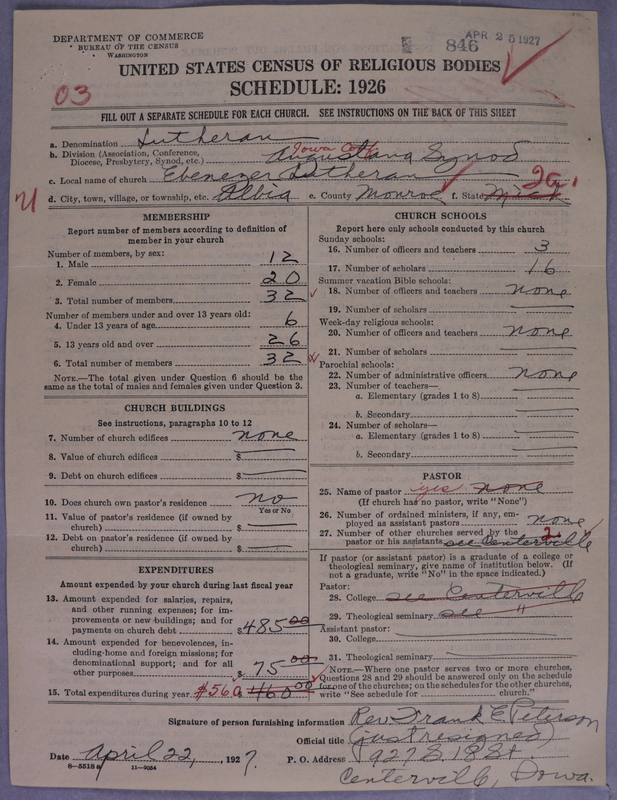 DEPARTMENT OF COMMERCE
BUREAU OF THE CENSUS
WASHINGTON
846
APR 25 1927
UNITED STATES CENSUS OF RELIGIOUS BODIES
SCHEDULE: 1926
03
FILL OUT A SEPARATE SCHEDULE FOR EACH CHURCH. SEE INSTRUCTIONS ON THE BACK OF THIS SHEET
a. Denomination Lutheran
b. Division (Association, Conference, Diocese, Presbytery, Synod, etc.) Iowa Conf. Augustana Synod
c. Local name of church Ebenezer Lutheran
d. City, town, village, or township, etc. Albia e. County Monroe f. State Mich Ia.
MEMBERSHIP
Report number of members according to definition of
member in your church
Number of members, by sex:
1. Male 12
2. Female 20
3. Total number of members 32
Number of members under and over 13 years old:
4. Under 13 years of age 6
5. 13 years old and over 26
6. Total number of members 32
NOTE.—The total given under Question 6 should be the
same as the total of males and females given under Question 3.
CHURCH BUILDINGS
See instructions, paragraphs 10 to 12
7. Number of church edifices none
8. Value of church edifices $
9. Debt on church edifices $
10. Does church own pastor's residence no
Yes or No
11. Value of pastor's residence (if owned by
church) $
12. Debt on pastor's residence (if owned by
church) $
EXPENDITURES
Amount expended by your church during last fiscal year
13. Amount expended for salaries, repairs,
and other running expenses; for im-
provements or new buildings; and for
payments on church debt $485 00
14. Amount expended for benevolences, in-
cluding home and foreign missions; for
denominational support; and for all
other purposes $75 00
15. Total expenditures during year $560 $460 00
CHURCH SCHOOLS
Report here only schools conducted by this church
Sunday schools:
16. Number of officers and teachers 3
17. Number of scholars 16
Summer vacation Bible schools:
18. Number of officers and teachers none
19. Number of scholars
Week-day religious schools:
20. Number of officers and teachers none
21. Number of scholars
Parochial schools:
22. Number of administrative officers none
23. Number of teachers—
a. Elementary (grades 1 to 8)
b. Secondary
24. Number of scholars—
a. Elementary (grades 1 to 8)
b. Secondary
PASTOR
25. Name of pastor yes none
(If church has no pastor, write "None")
26. Number of ordained ministers, if any, em-
ployed as assistant pastors none
27. Number of other churches served by the
pastor or his assistants see Centerville 2
If pastor (or assistant pastor) is a graduate of a college or
theological seminary, give name of institution below. (If
not a graduate, write "No" in the space indicated.)
Pastor:
28. College see Centerville
29. Theological seminary see "
Assistant pastor:
30. College
31. Theological seminary
NOTE.—Where one pastor serves two or more churches,
Questions 28 and 29 should be answered only on the schedule
for one of the churches; on the schedules for the other churches,
write "See schedule for church."
Signature of person furnishing information Rev. Frank E Peterson
Official title (just resigned)
Date April 22, 1927. P. O. Address 927 S. 18 St
8—5518 a 11—9054
Centerville, Iowa.